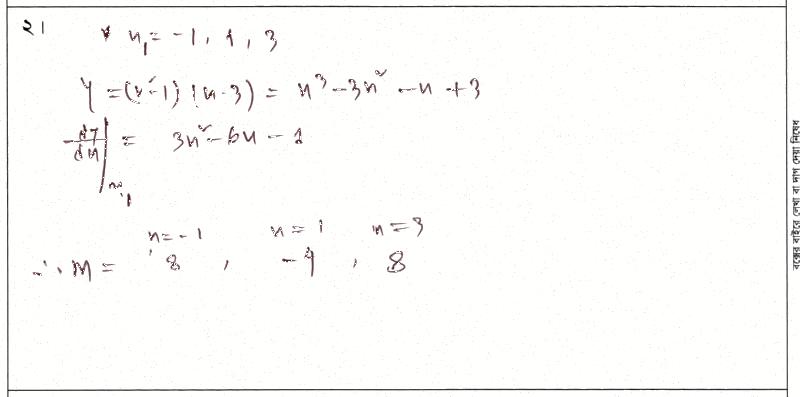 ২।
x₁ = -1, 1, 3
y = (x²-1)(x-3) = x³ - 3x² - x + 3
dy/dx |x₁ = 3x² - 6x - 1
x = -1 x = 1 x = 3
∴ m = 8, -4, 8
বক্সের বাইরে লেখা বা দাগ দেয়া নিষেধ